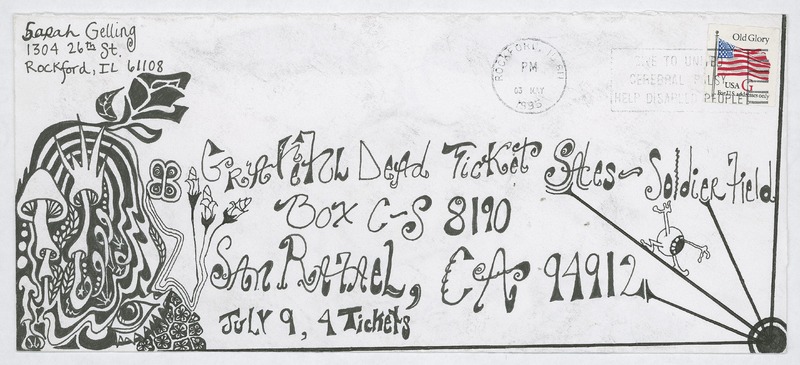 Sarah Gelling
1304 26th St.
Rockford, IL 61108
ROCKFORD, IL 611
PM
03 MAY
1995
TO UNITED
CEREBRAL PALSY
HELP DISABLED PEOPLE
Old Glory
USA G
For U.S. addresses only
Grateful Dead Ticket Sales - Soldier Field
Box C-S 8190
San Rafael, CA 94912
July 9, 4 Tickets